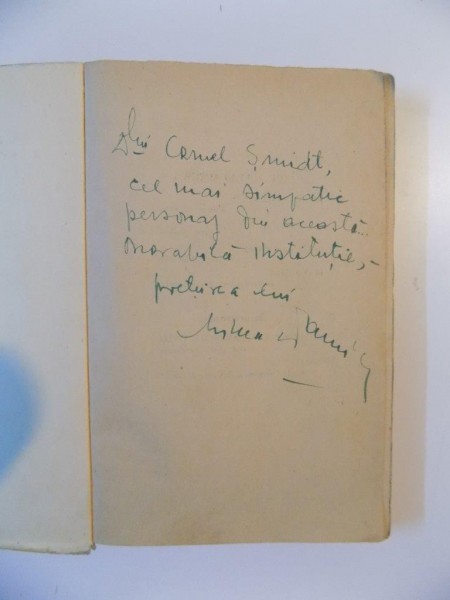 Dlui Cornel Șmidt,
cel mai simpatic
personaj din această..
onorabilă instituție, –
prețuirea lui